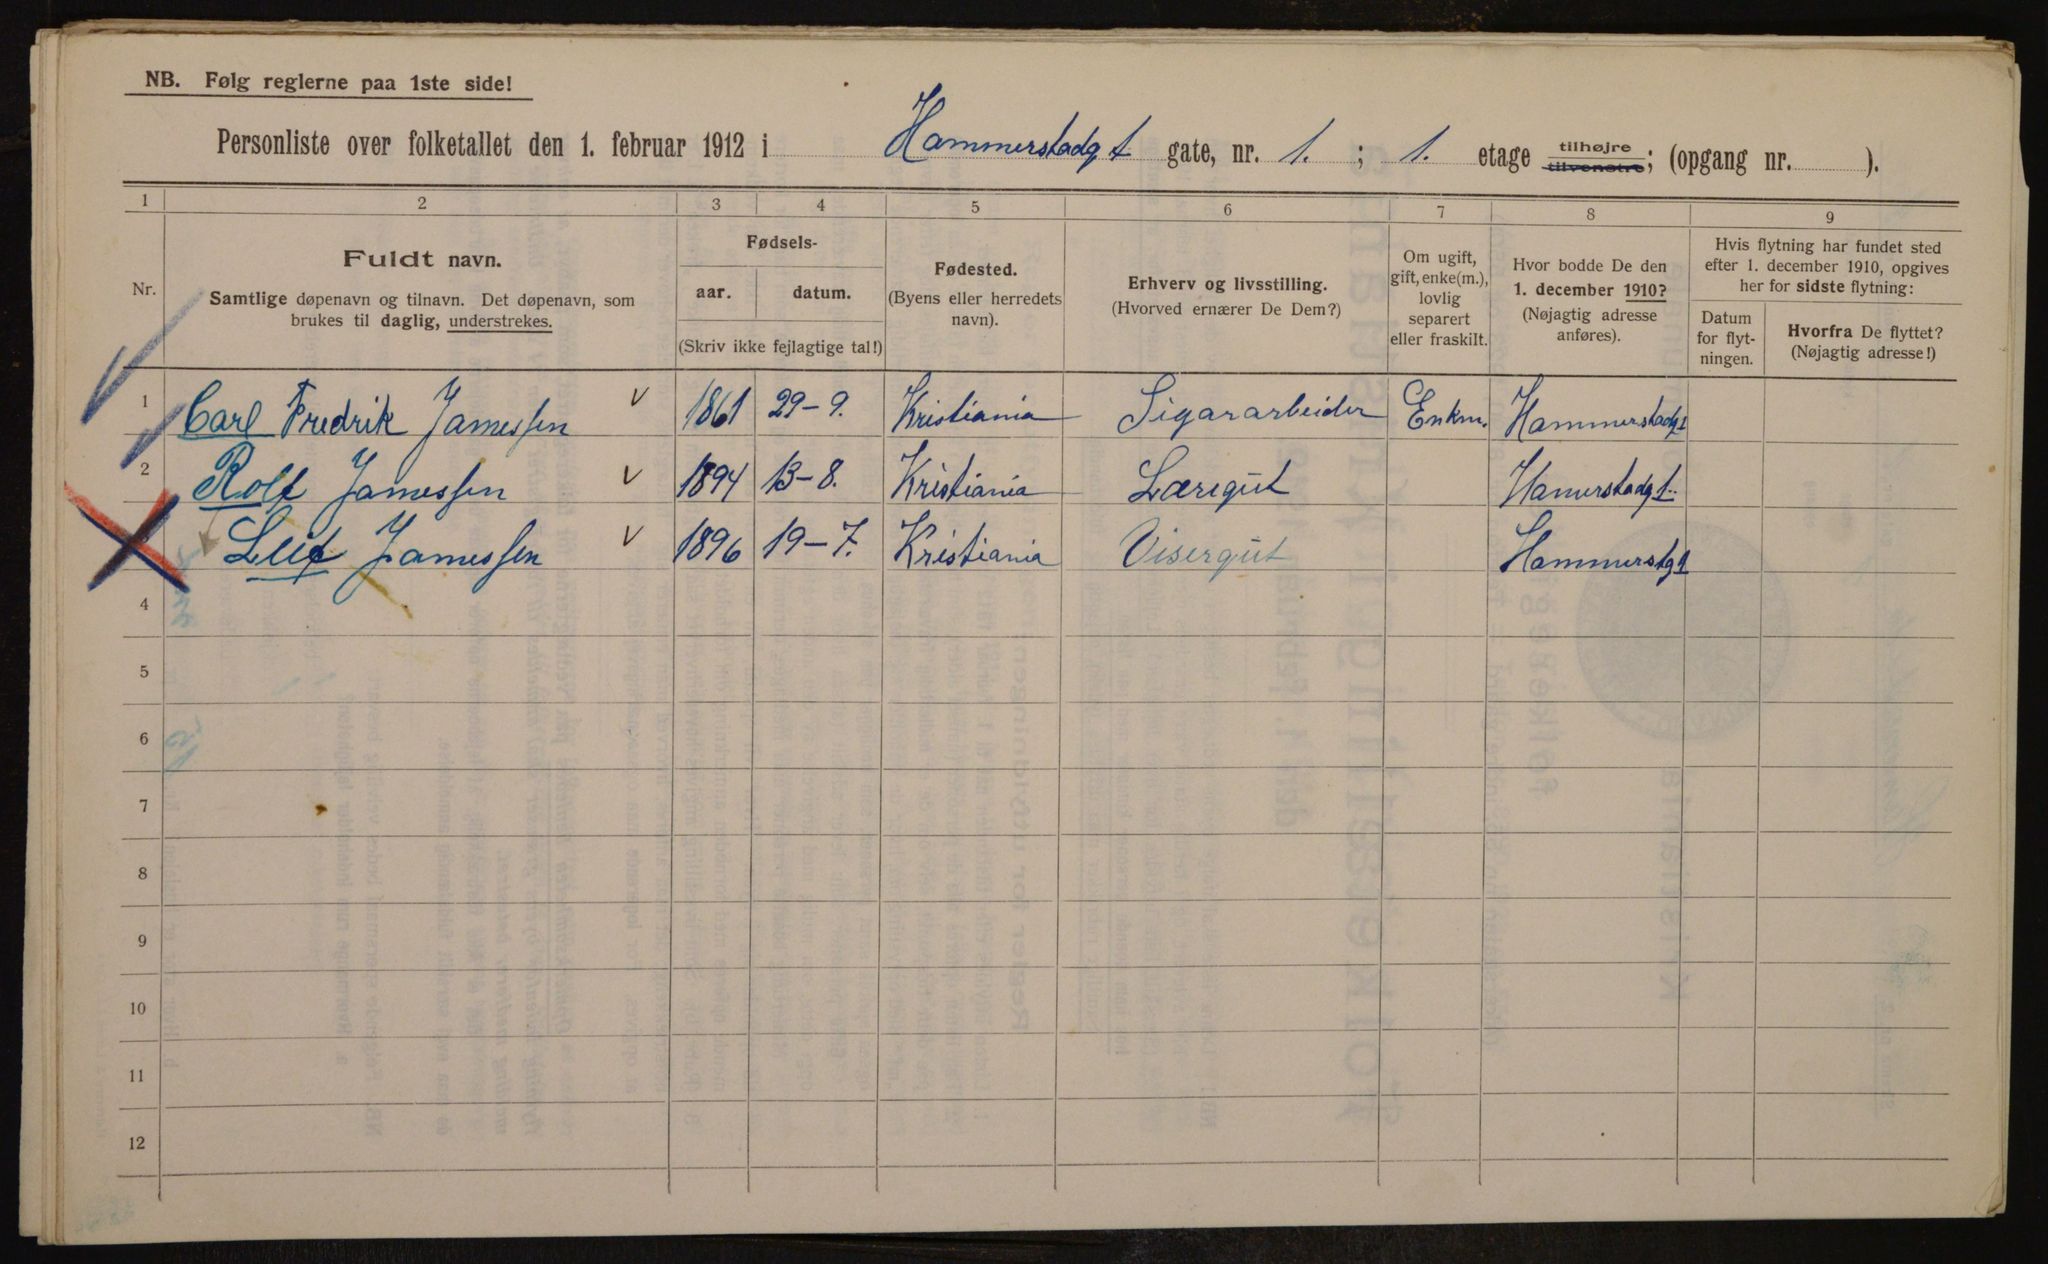 NB. Følg reglerne paa 1ste side!
Personliste over folketallet den 1. februar 1912 i Hammerstadgt gate, nr. 1. ; 1. etage tilhøjre tilvenstre; (opgang nr. ).
1 2 3 4 5 6 7 8 9
Nr.
Fuldt navn.
Samtlige døpenavn og tilnavn. Det døpenavn, som
brukes til daglig, understrekes.
Fødsels-
aar. datum.
(Skriv ikke fejlagtige tal!)
Fødested.
(Byens eller herredets
navn).
Erhverv og livsstilling.
(Hvorved ernærer De Dem?)
Om ugift,
gift, enke(m.),
lovlig
separert
eller fraskilt.
Hvor bodde De den
1. december 1910?
(Nøjagtig adresse
anføres).
Hvis flytning har fundet sted
efter 1. december 1910, opgives
her for sidste flytning:
Datum
for flyt-
ningen.
Hvorfra De flyttet?
(Nøjagtig adresse!)
1 Carl Fredrik Jamessen v 1861 29-9. Kristiania Sigararbeider Enkm. Hammerstadg1
2 Rolf Jamessen v 1894 13-8. Kristiania Læregut Hamerstadg1.
Leif Jamessen v 1896 19-7. Kristiania Visergut Hammerstg1
4
5
6
7
8
9
10
11
12